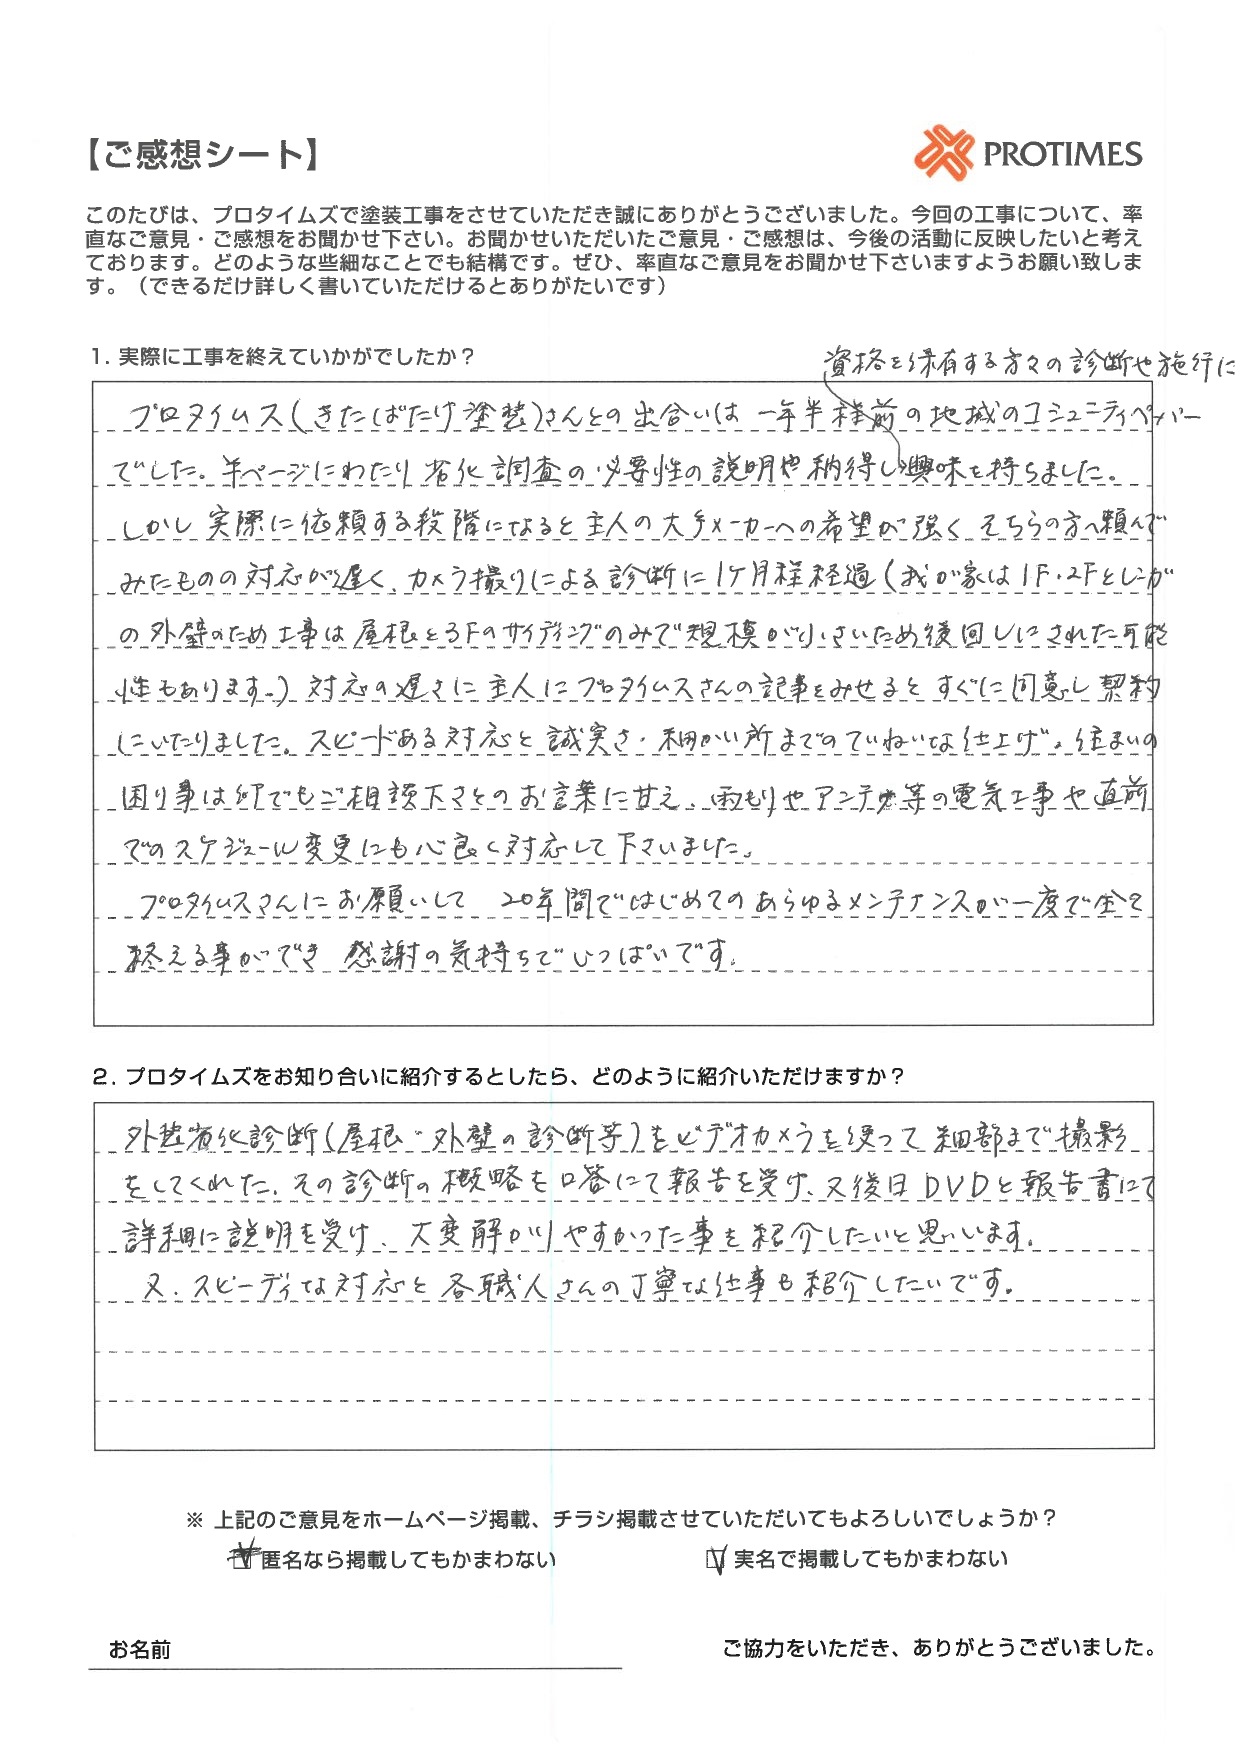 【ご感想シート】
PROTIMES
このたびは、プロタイムズで塗装工事をさせていただき誠にありがとうございました。今回の工事について、率
直なご意見・ご感想をお聞かせ下さい。お聞かせいただいたご意見・ご感想は、今後の活動に反映したいと考え
ております。どのような些細なことでも結構です。ぜひ、率直なご意見をお聞かせ下さいますようお願い致しま
す。（できるだけ詳しく書いていただけるとありがたいです）
1. 実際に工事を終えていかがでしたか？
資格を保有する方々の診断や施行に
プロタイムス(きたばたけ塗装)さんとの出合いは 一年半程前の地域のコミュニティペーパー
でした。半ページにわたり劣化調査の必要性の説明や納得し興味を持ちました。
しかし実際に依頼する段階になると主人の大手メーカーへの希望が強く そちらの方へ頼んで
みたものの対応が遅く、カメラ撮りによる診断に1ケ月程経過(我が家は1F・2Fとレンガ
の外壁のため工事は屋根と3Fのサイディングのみで規模が小さいため後回しにされた可能
性もあります。) 対応の遅さに主人にプロタイムスさんの記事をみせるとすぐに同意し契約
にいたりました。スピードある対応と誠実さ・細かい所までのていねいな仕上げ。住まいの
困り事は何でもご相談下さとのお言葉に甘え、雨もりやアンテナ等の電気工事や直前
でのスケジュール変更にも心良く対応して下さいました。
プロタイムスさんにお願いして 20年間ではじめてのあらゆるメンテナンスが一度で全て
終える事ができ 感謝の気持ちでいっぱいです。
2. プロタイムズをお知り合いに紹介するとしたら、どのように紹介いただけますか？
外装劣化診断(屋根・外壁の診断等)をビデオカメラを使って細部まで撮影
をしてくれた。その診断の概略を口答にて報告を受け、又後日DVDと報告書にて
詳細に説明を受け、大変解かりやすかった事を紹介したいと思います。
又、スピーディな対応と各職人さんの丁寧な仕事も紹介したいです。
※ 上記のご意見をホームページ掲載、チラシ掲載させていただいてもよろしいでしょうか？
匿名なら掲載してもかまわない 実名で掲載してもかまわない
お名前 ご協力をいただき、ありがとうございました。